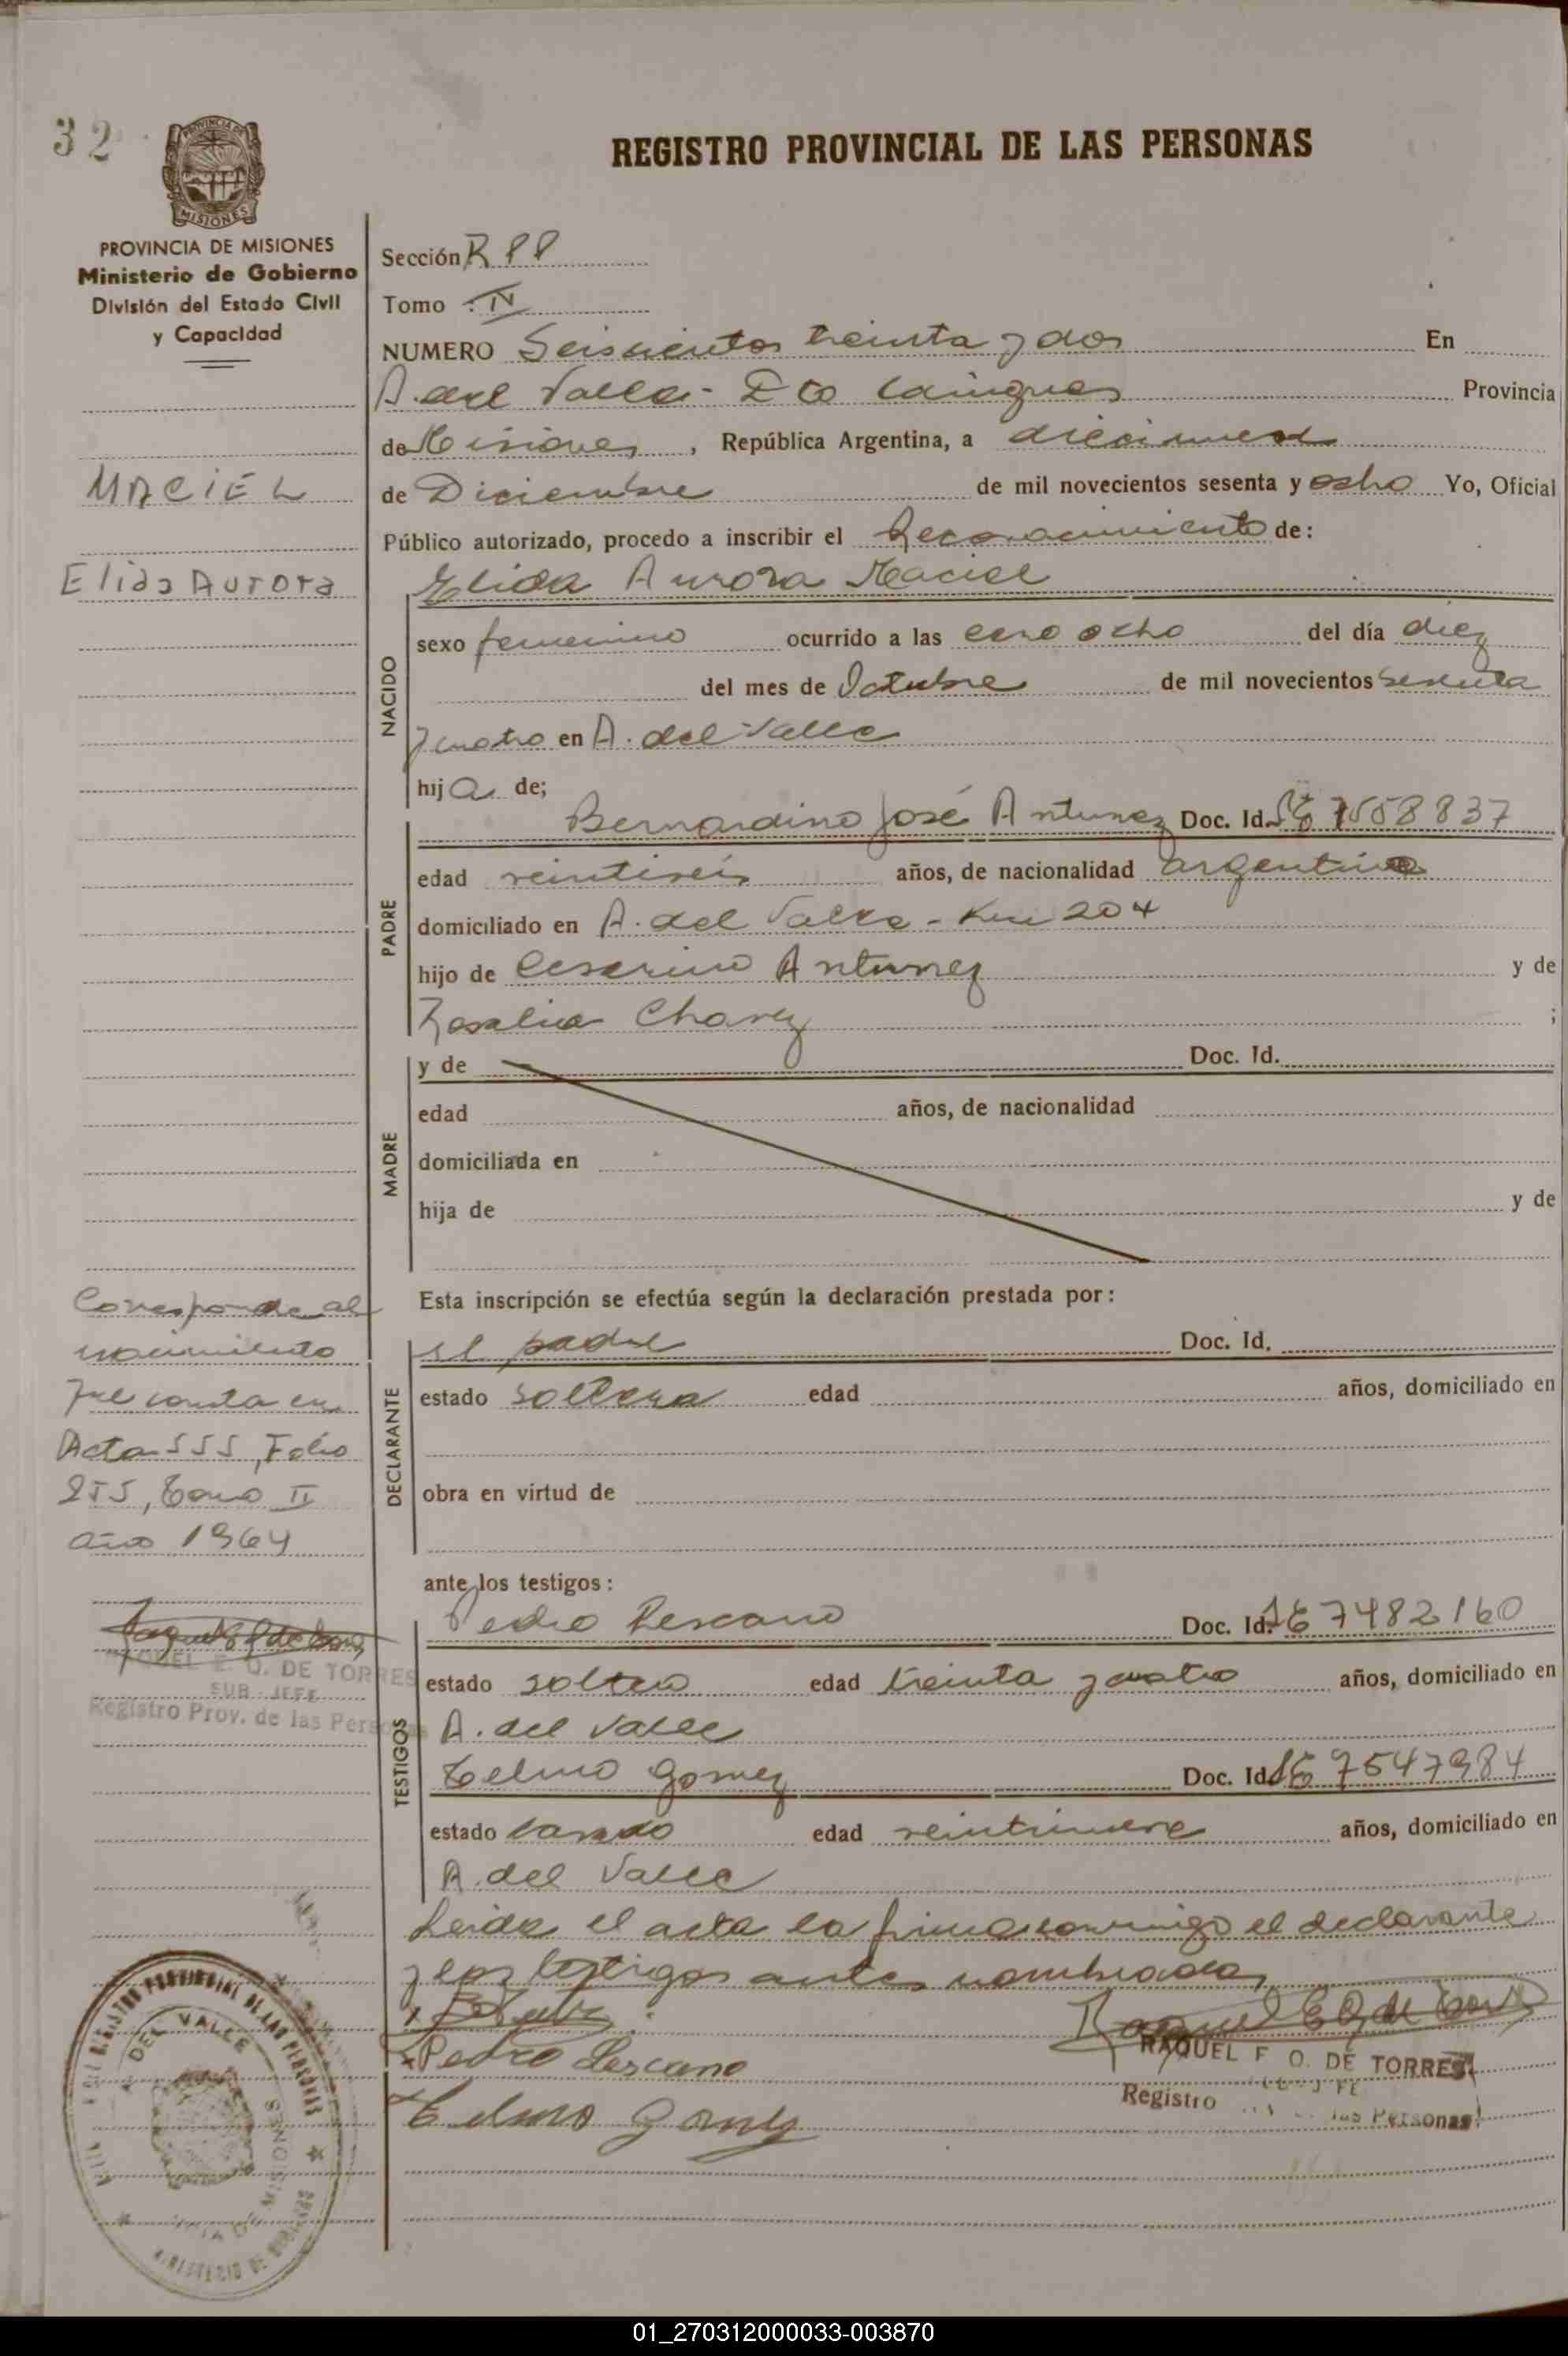 32
REGISTRO PROVINCIAL DE LAS PERSONAS
PROVINCIA DE MISIONES
MISIONES
PROVINCIA DE MISIONES
Ministerio de Gobierno
División del Estado Civil
y Capacidad
Sección R P P
Tomo IV
NUMERO Seiscientos treinta y dos En
A. del Valle - Dto Cainguas Provincia
de Misiones, República Argentina, a diecinueve
MACIEL
de Diciembre de mil novecientos sesenta y ocho Yo, Oficial
Público autorizado, procedo a inscribir el Reconocimiento de:
Elida Aurora
Elida Aurora Maciel
NACIDO
sexo femenino ocurrido a las cero ocho del día diez
del mes de Octubre de mil novecientos sesenta
y cuatro en A. del Valle
hija de;
PADRE
Bernardino José Antunez Doc. Id. 7558837
edad veintiseis años, de nacionalidad argentino
domiciliado en A. del Valle - Km 204
hijo de Ceserino Antunez y de
Rosalia Chavez ;
MADRE
y de Doc. Id.
edad años, de nacionalidad
domiciliada en
hija de y de
Corresponde al
nacimiento
que consta en
Acta 555, Folio
255, Tomo II
año 1964
Esta inscripción se efectúa según la declaración prestada por:
DECLARANTE
el padre Doc. Id.
estado soltero edad años, domiciliado en
obra en virtud de
RAQUEL E. O. DE TORRES
SUB - JEFE
Registro Prov. de las Personas
ante los testigos:
TESTIGOS
Pedro Lescano Doc. Id. LE 7482160
estado soltero edad treinta y cuatro años, domiciliado en
A. del Valle
Telmo Gomez Doc. Id. LE 7547984
estado casado edad veintinueve años, domiciliado en
A. del Valle
Leida el acta la firma conmigo el declarante
y los testigos antes nombrados
Pedro Lescano
Telmo Gomez
RAQUEL E. O. DE TORRES
Registro las Personas
REGISTRO PROVINCIAL DE LAS PERSONAS
A DEL VALLE
MISIONES
MINISTERIO DE GOBIERNO
01_270312000033-003870